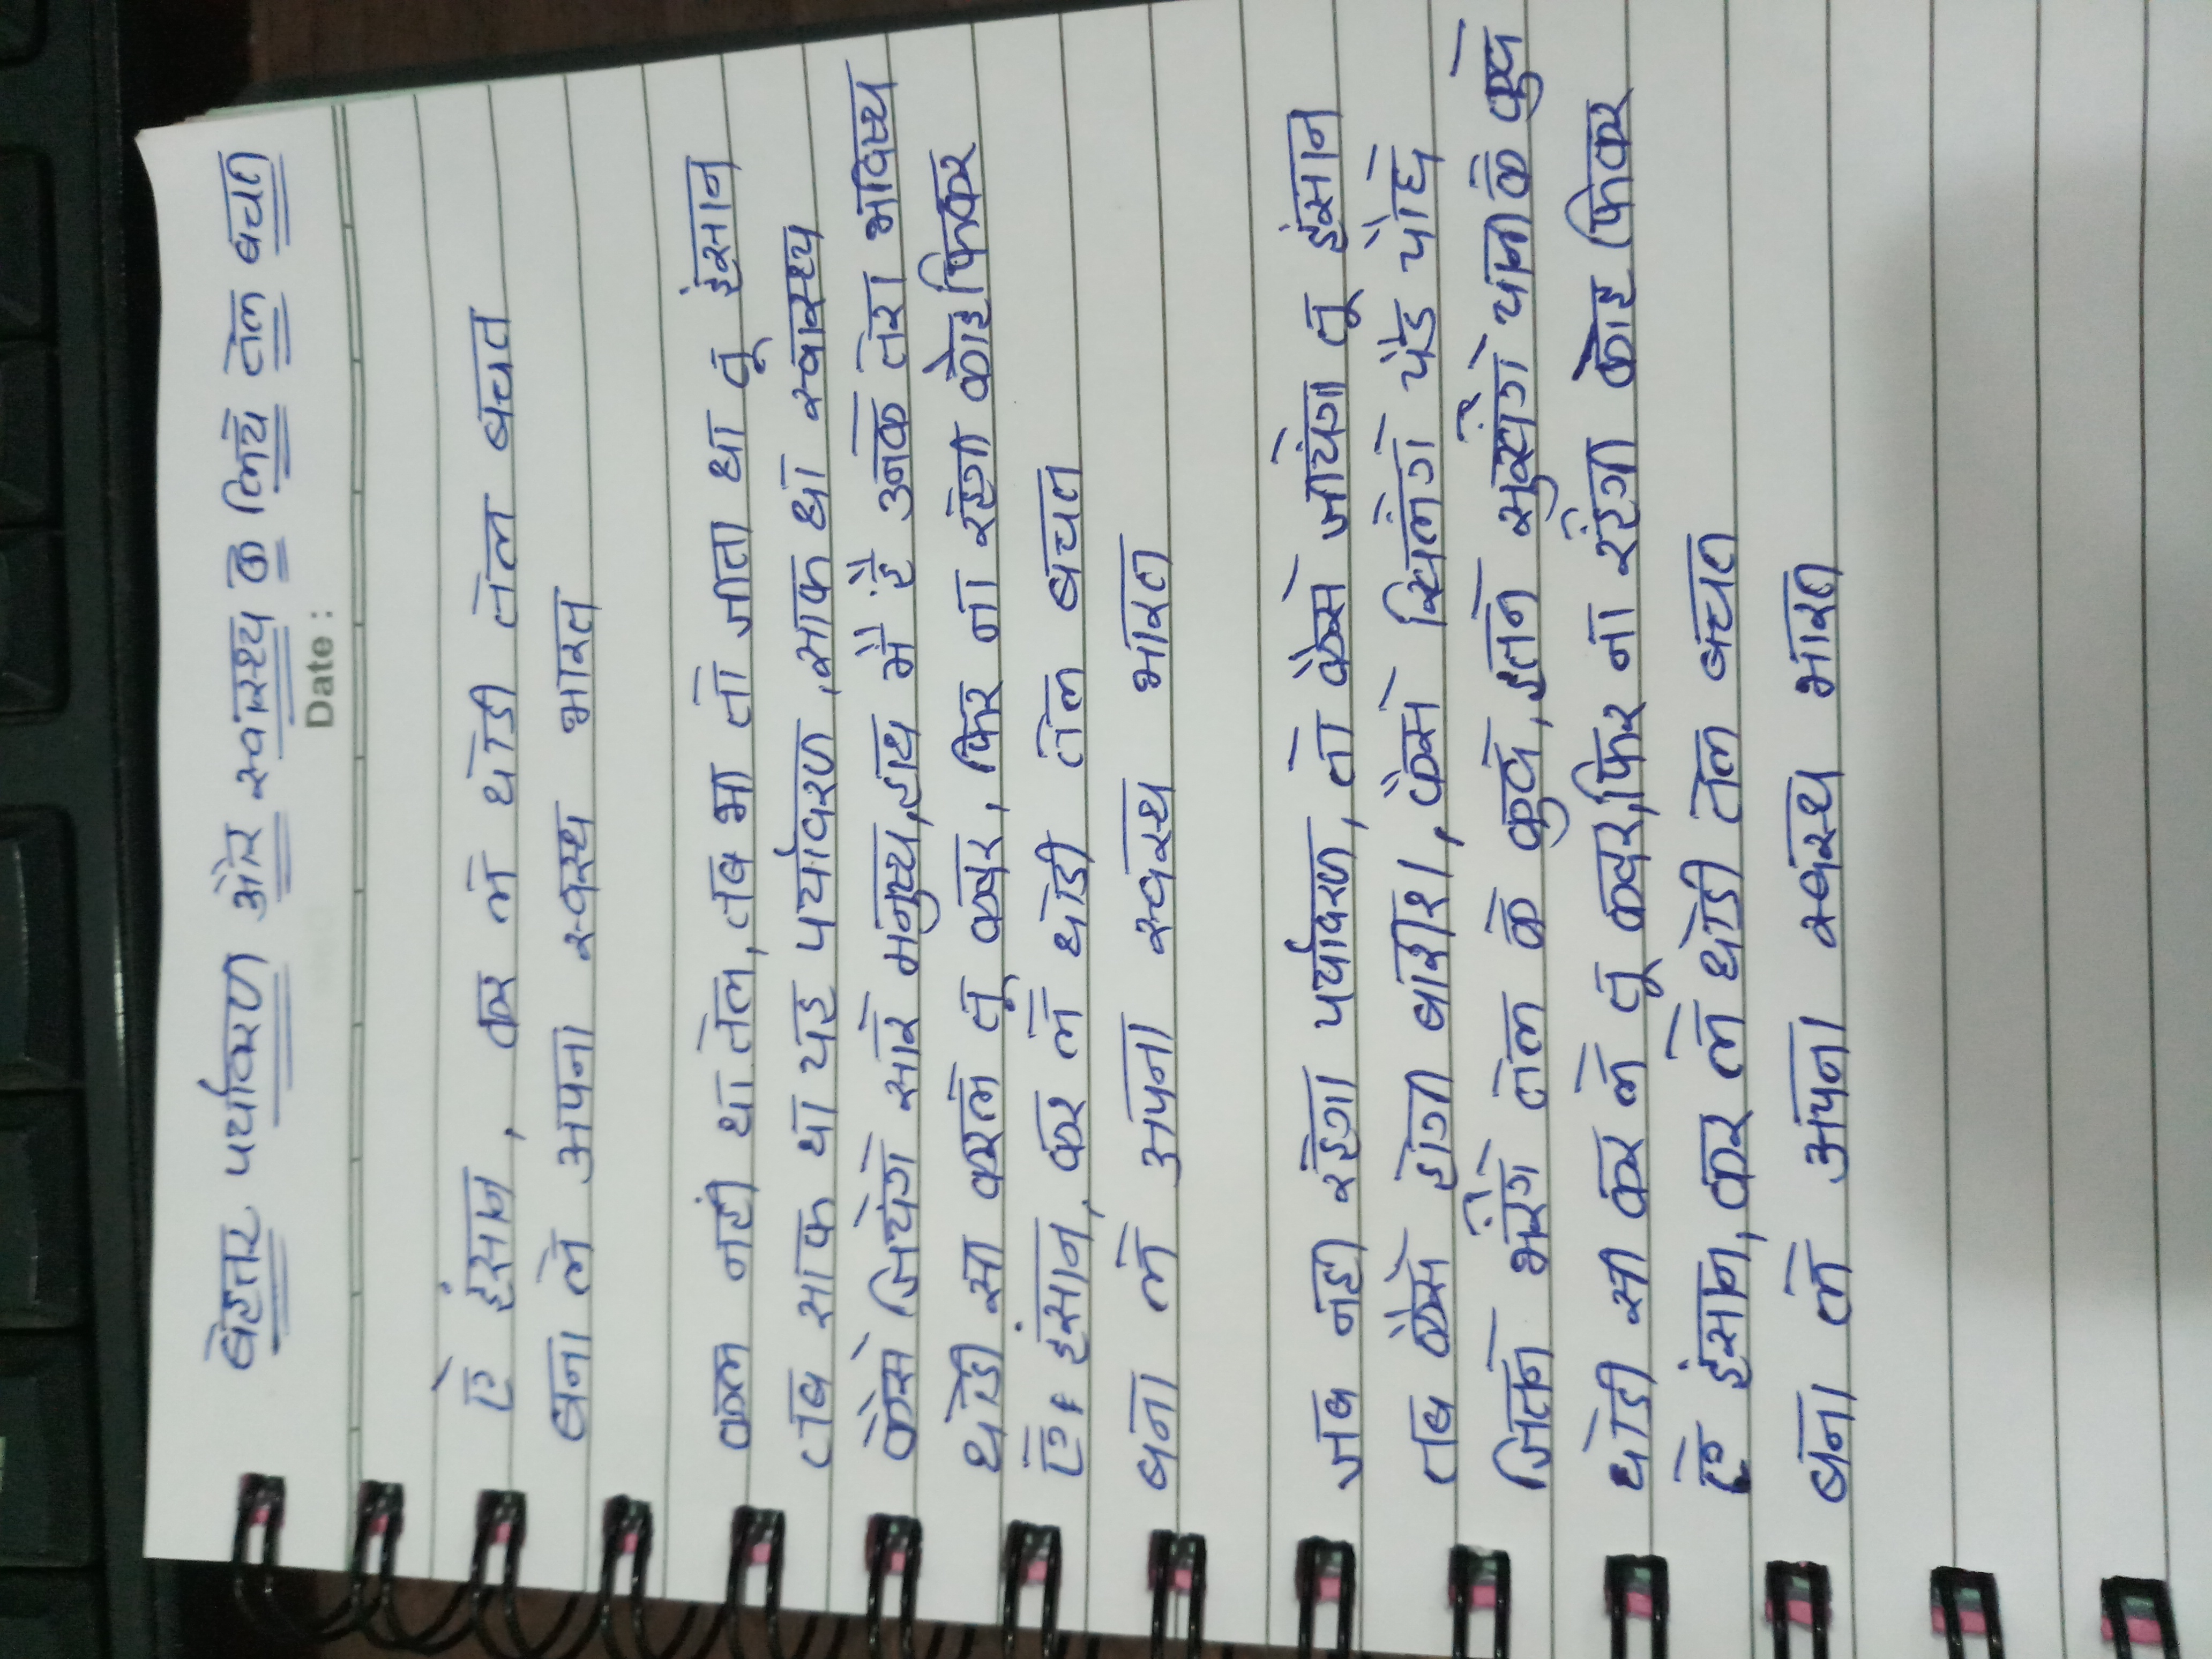 बेहत्तर पर्यावरण ओर स्वास्थ्य के लिये तेल बचत
Date :
ऐ इंसान , कर ले थोडी तेल बचत
बना ले अपना स्वस्थ भारत
कल नही था तेल, तब भी तो जीता था तू इंसान
तब साफ था यह पर्यावरण, साफ था स्वास्थ्य
कैसे जियेगे सारे मनुष्य, हाथ मै है उनके तेरा भविष्य
थोडी सी करले तू कदर, फिर ना रहेगा कोई फिकर
ऐ इंसान, कर ले थोडी तेल बचत
बना ले अपना स्वस्थ भारत
जब नही रहेगा पर्यावरण, तो कैसे जीयेगा तू इंसान
तब कैसे होगी बारीश, कैसे खिलेगे पेड पौधे
जितने भरेगे तेल के कुएं, इतने सुखेगे पानी के कुएं
थोडी सी कर ले तू कदर, फिर ना रहेगा कोई फिकर
ऐ इंसान, कर ले थोडी तेल बचत
बना ले अपना स्वस्थ भारत